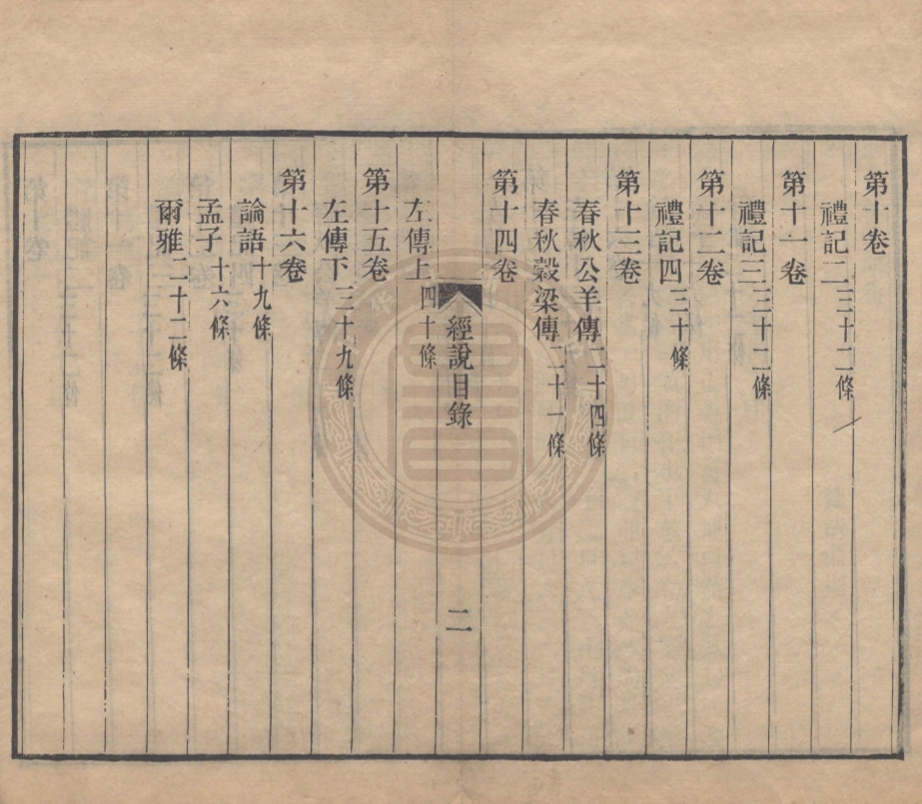 第十卷
禮記二三十二條
第十一卷
禮記三三十二條
第十二卷
禮記四三十條
第十三卷
春秋公羊傳二十四條
春秋穀梁傳二十一條
第十四卷
經說目錄
二
左傳上四十條
第十五卷
左傳下三十九條
第十六卷
論語十九條
孟子十六條
爾雅二十二條